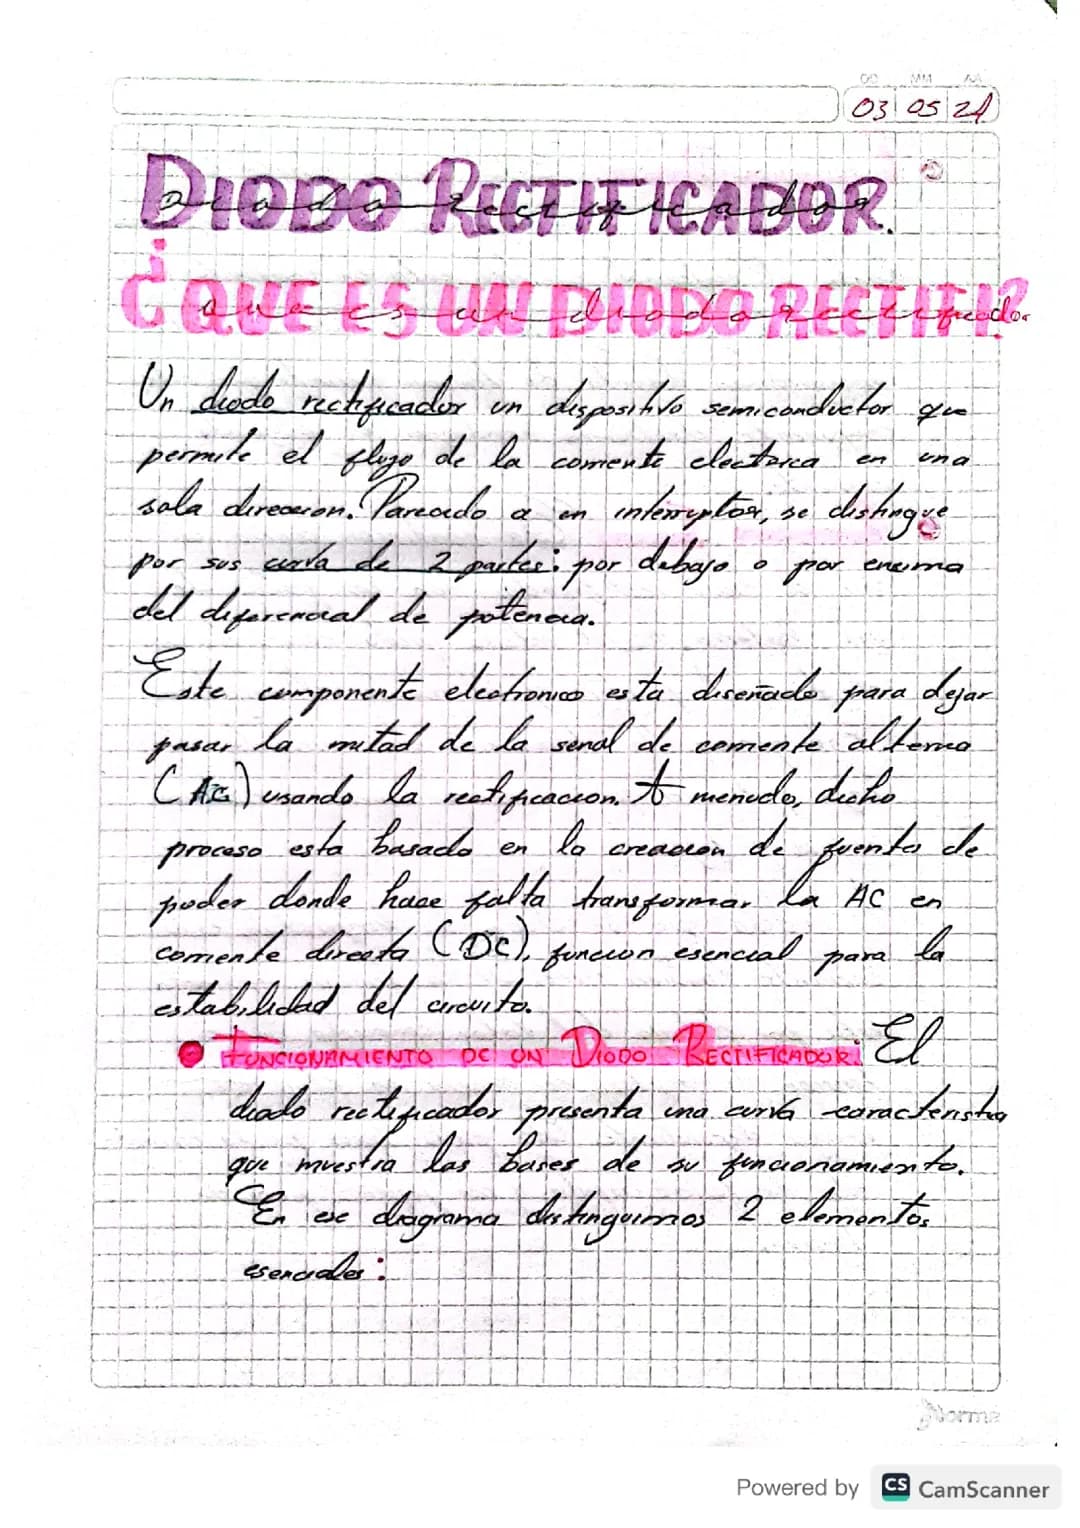 DD MM AA
03 05 21
DIODO RECTIFICADOR.
Diodo Rectificador
¿QUE ES UN DIODO RECTIFI?
que es un diodo rectificador
Un diodo rectificador un dispositivo semiconductor que
permite el flujo de la corriente electrica en una
sola direccion. Parecido a un interruptor, se distingue
por sus curva de 2 partes: por debajo o por encima
del diferencial de potencia.
Este componente electronico esta diseñado para dejar
pasar la mitad de la senal de corriente alterna
(AC) usando la rectificacion. A menudo, dicho
proceso esta basado en la creacion de fuente de
poder donde hace falta transformar la AC en
corriente directa (DC), funcion esencial para la
estabilidad del circuito.
• FUNCIONAMIENTO DE UN DIODO RECTIFICADOR: El
diodo rectificador presenta una curva caracteristica
que muestra las bases de su funcionamiento.
En ese diagrama distinguimos 2 elementos
esenciales:
Norma
Powered by CS CamScanner